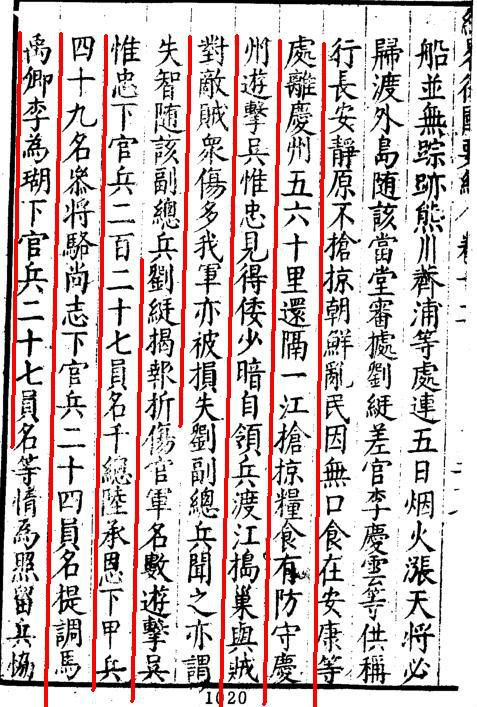 船並無踪跡熊川薺浦等處連五日烟火漲天將必
歸渡外島隨該當堂審處劉綎差官李慶雲等供稱
行長安靜原不搶掠朝鮮亂民因無口食在安康等
處離慶州五六十里還隔一江搶掠糧食有防守慶
州遊擊吳惟忠見得倭少暗自領兵渡江搗巢與賊
對敵賊眾傷多我軍亦被損失劉副總兵聞之亦謂
失智隨該副總兵劉綎揭報折傷官軍名數遊擊吳
惟忠下官兵二百二十七員名千總陸承恩下甲兵
四十九名叅將駱尚志下官兵二十四員名提調馬
禹卿李為瑚下官兵二十七員名等情為照留兵恊
1020